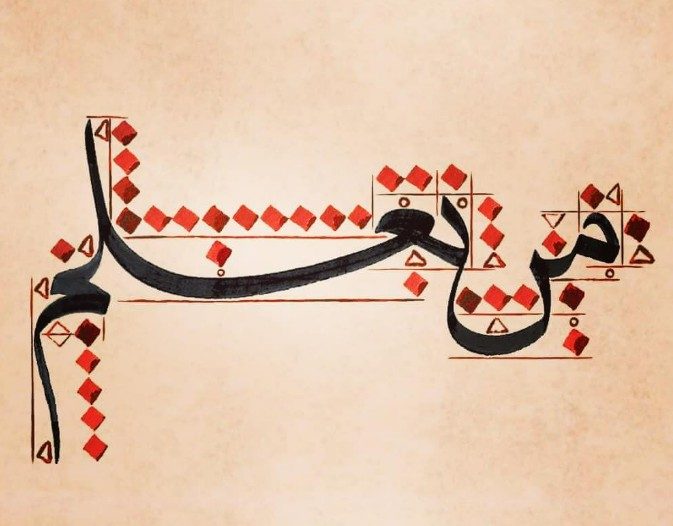 من يعلم